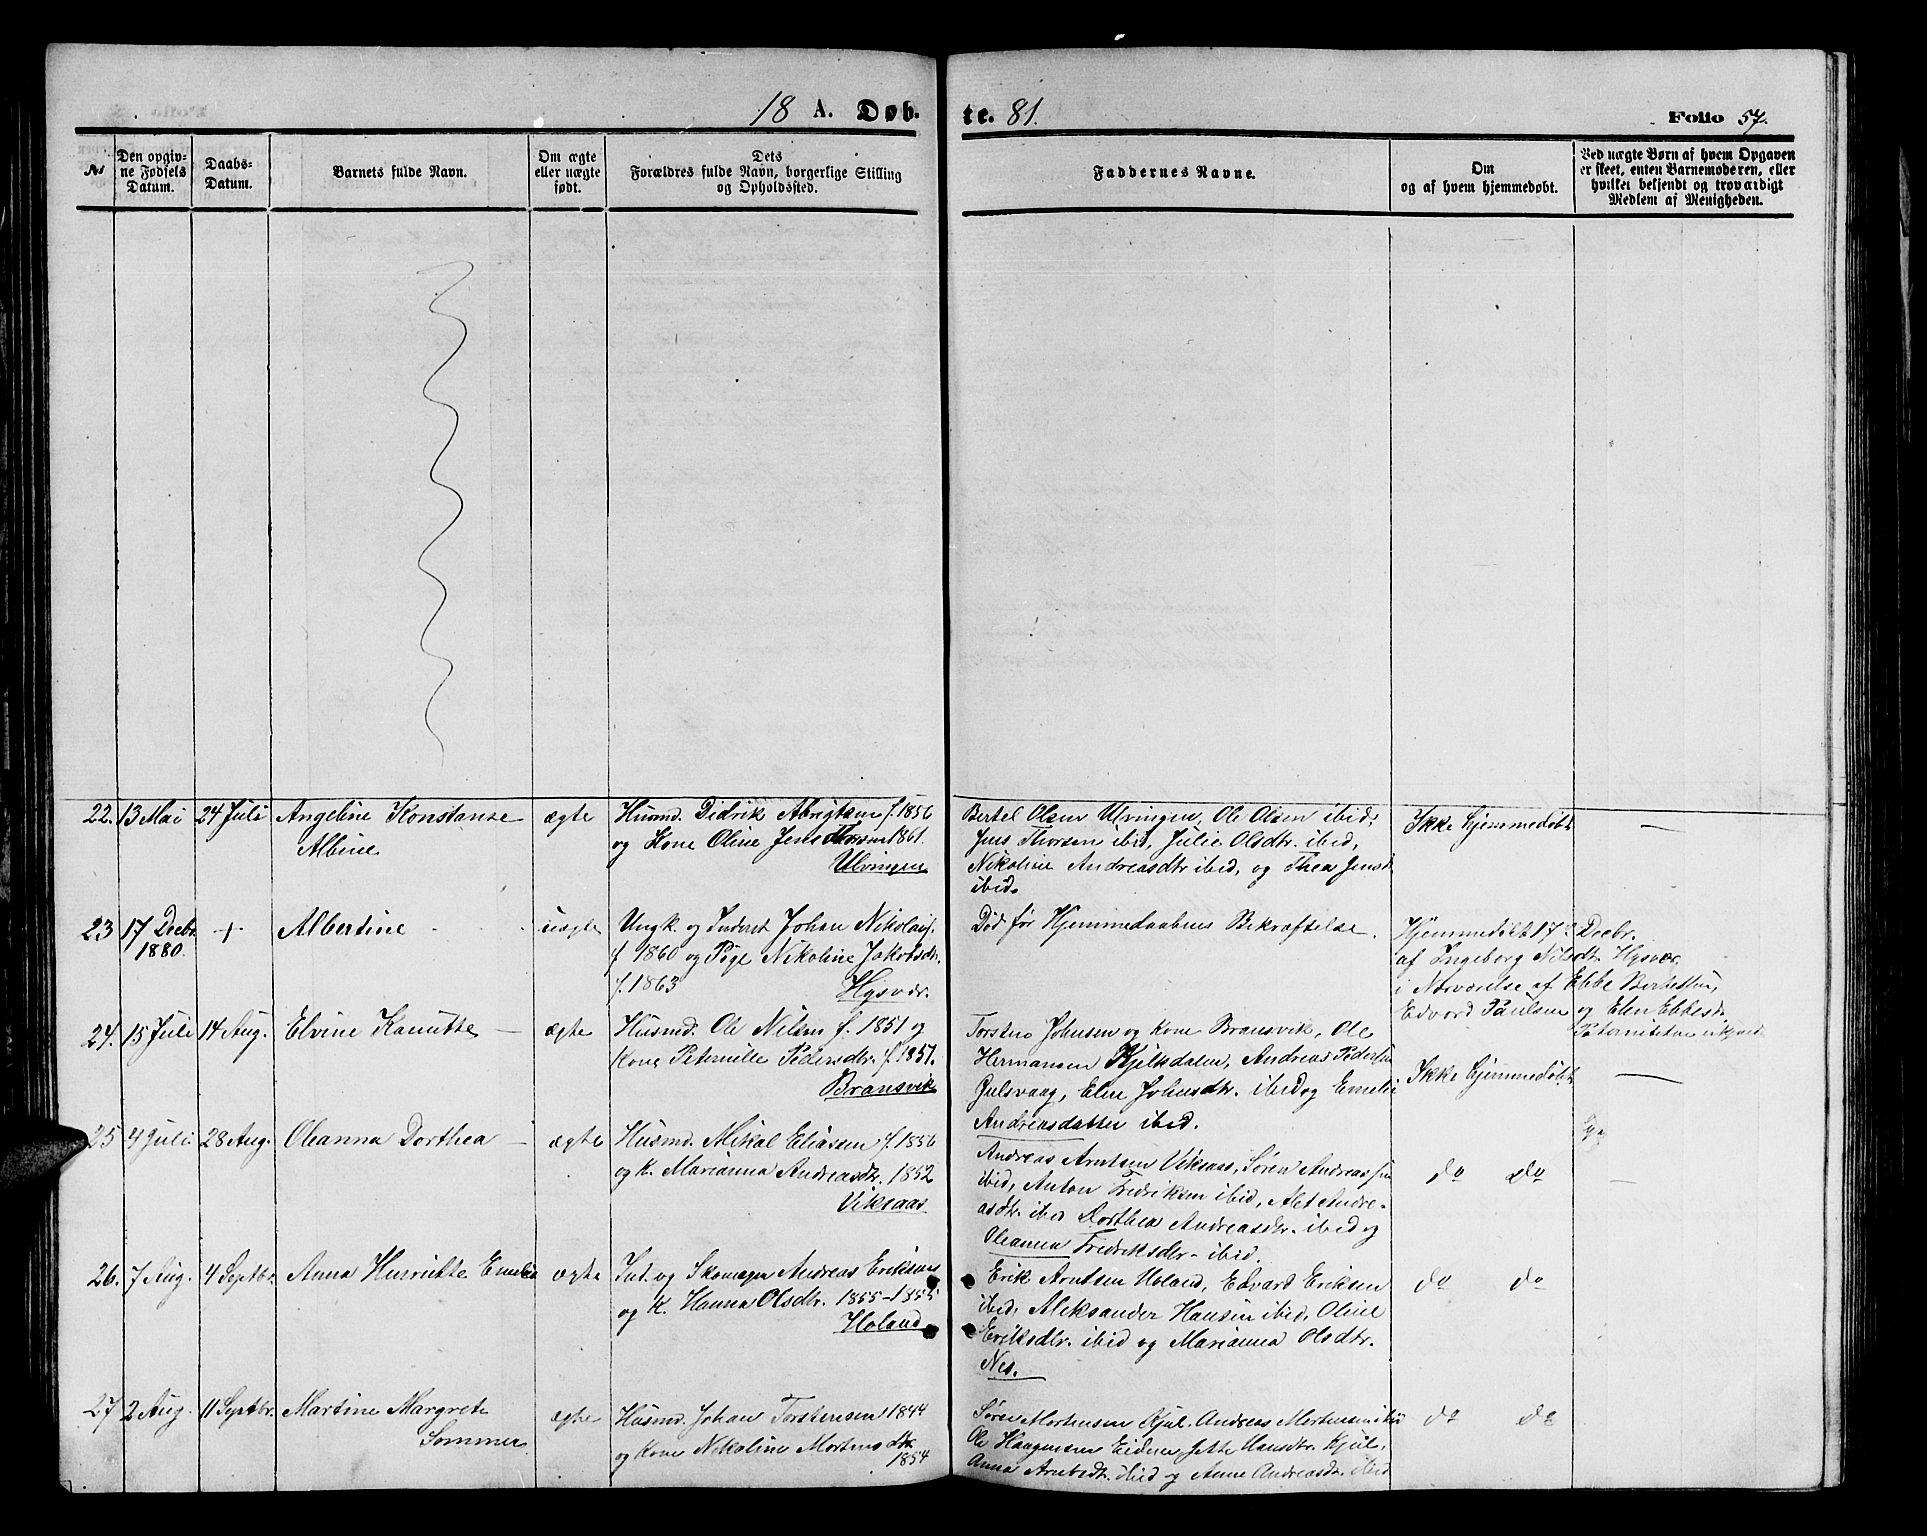 18 A. Døb. te. 81. Folio 57.
No
Den opgiv-
ne Fødsels
Datum.
Daabs-
Datum.
Barnets fulde Navn.
Om ægte
eller uægte
født.
Dets
Forældres fulde Navn, borgerlige Stilling
og Opholdssted.
Faddernes Navne.
Om
og af hvem hjemmedøbt.
Ved uægte Børn af hvem Opgaven
er skeet, enten Barnemoderen, eller
hvilket bekjendt og troværdigt
Medlem af Menigheden.
22. 13 Mai 24 Juli Angeline Konstanse
Albine
ægte
Husmd. Didrik Abrigtsen f. 1856
og Kone Oline Jens 1861.
Ulvingen
Bertel Olsen Ulvingen, Ole Olsen ibid,
Jens Thorsen ibid, Julie Olsdtr. ibid,
Nikoline Andreasdtr ibid, og Thea Jensd
ibid.
Ikke hjemmedøbt —
23 17 Decbr + Albertine uægte
1880.
Ungk. og Inderst Johan Nikolais.
f 1860 og Pige Nikoline Jakobsdtr.
f. 1863 Hysvær.
Død før Hjemmedaabens Bekræftelse.
Hjemmedøbt 17 Decbr.
af Ingeborg Nilsdtr Hysvær
i Nærværelse af Ebbe Berhettsen,
Edvard Paulsen og Elen Ebbesd.
24. 15 Juli 14 Aug. Elvine Kanutte — ægte
Husmd. Ole Nilsen f. 1851 og
Kone Peternille Pedersdtr. f. 1857.
Bransvik
Torsten Johnsen og Kone Bransvik, Ole
Hermansen Kjelkdalen, Andreas Pedersen
Julsvaag, Elen Johnsdtr. ibid og Emelie
Andreasdatter ibid.
Ikke hjemmedøbt —
25 4 Juli 28 Aug. Oleanna Dorthea — ægte
Husmd. Mikal Eliassen f. 1856
og K. Marianna Andreasdtr. 1852
Viksaas
Andreas Arntsen Viksaas, Søren Andreassen
ibid, Anton Fredriksen ibid, Alet Andre-
asdtr. ibid Dorthea Andreasdtr. ibid og
Oleanna Fredriksdtr. ibid.
do do —
26. 7 Aug. 4 Septbr. Anna Henriette Emelie ægte
Ind. og Skomager Andreas Eriksen
og K. Hanna Olsdtr. 1855 – 1855
Holand
Erik Arntsen Holand, Edvard Eriksen
ibid, Aleksander Hansen ibid, Oline
Eriksdtr. ibid og Marianna Olsdtr.
Nes.
do do
27 2 Aug. 11 Septbr. Martine Margrete
Sommer
ægte
Husmd. Johan Torstensen 1844
og Kone Nikoline Mortensdtr.
1854
Søren Mortensen Kjul, Andreas Mortensen ibid
Ole Haagensen Eidnes Jette Hansdtr. Kjul,
Anna Arntsdt. ibid og Anne Andreasdt. ibid
do do